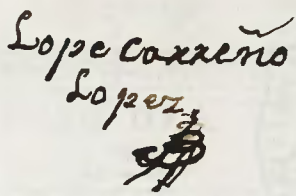 Lope carreño
Lopez